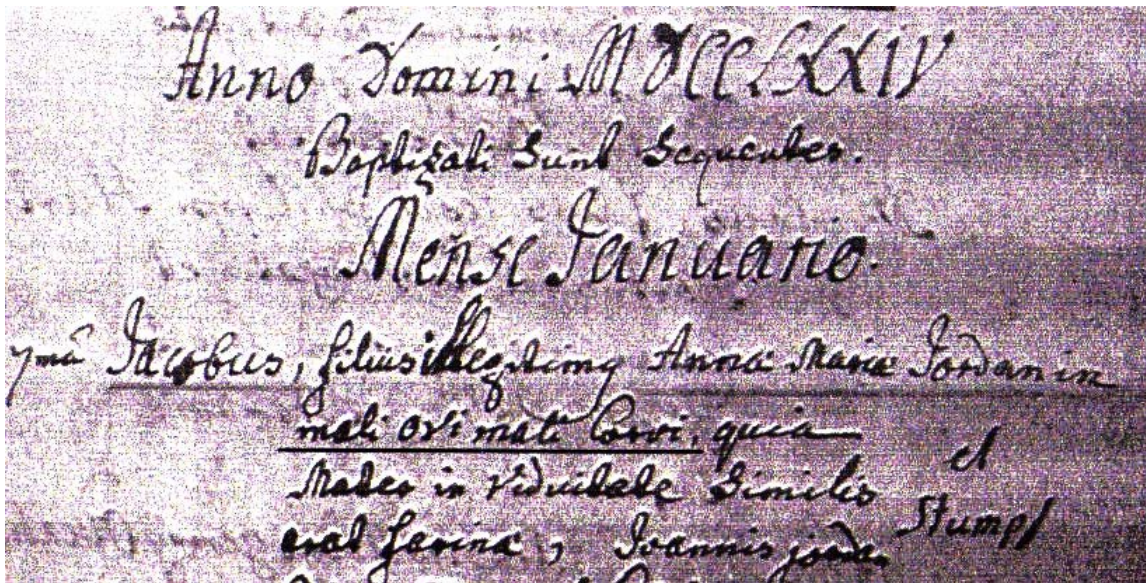 Anno Domini MDCCLXXIV
Baptizati Sunt Sequentes.
Mense Januario.
7mâ Jacobus, filius illegitimg Annæ Mariæ Jordan in
mali ovi mali Corvi, quia
Mater in Viduitate Similis
erat farinæ, Joannis jorda
et
Stumpf